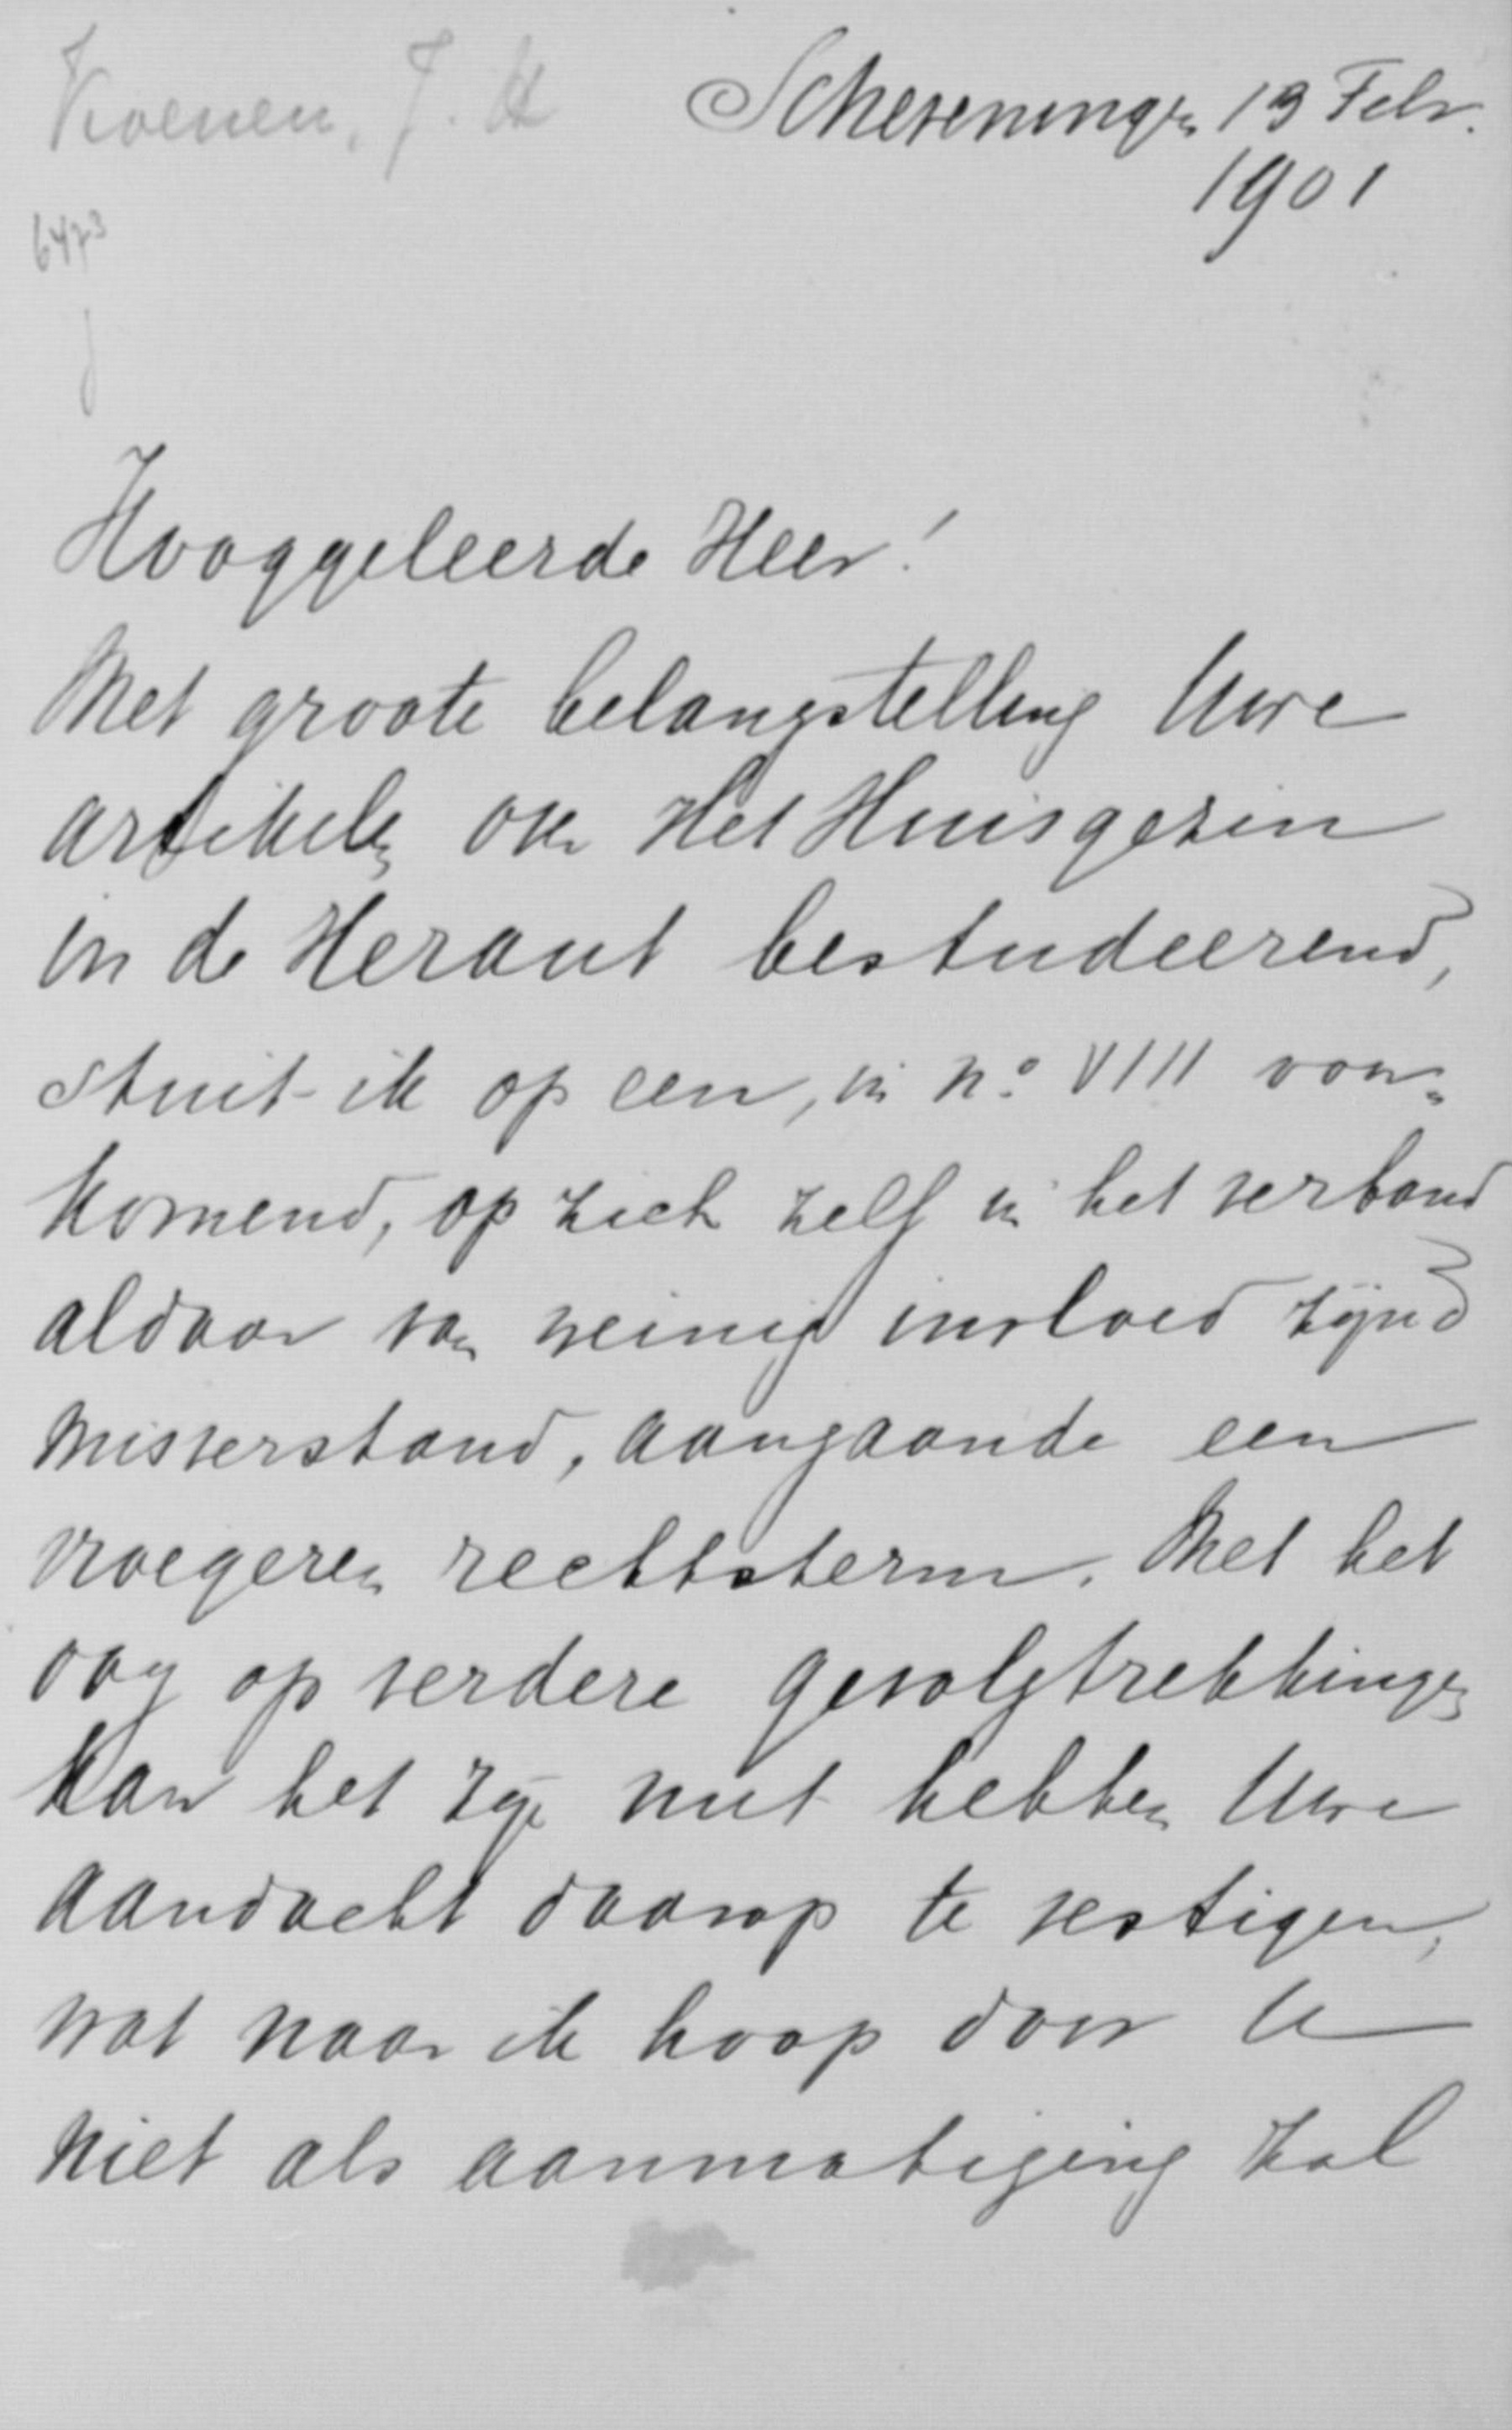 Koenen, J. H
Scheveningen 13 Febr.
1901
6473
Hooggeleerde Heer!
Met groote belangstelling Uwe
artikelen over Het Huisgezin
in de Heraut bestudeerend,
stuit ik op een, in No. VIII voor-
komend, op zich zelf in het verband
aldaar van weinig invloed zijnd
misverstand, aangaande een
vroegeren rechtsterm. Met het
oog op verdere gevolgtrekkingen
kan het zijn nut hebben Uwe
aandacht daarop te vestigen,
wat naar ik hoop door U
niet als aanmatiging zal